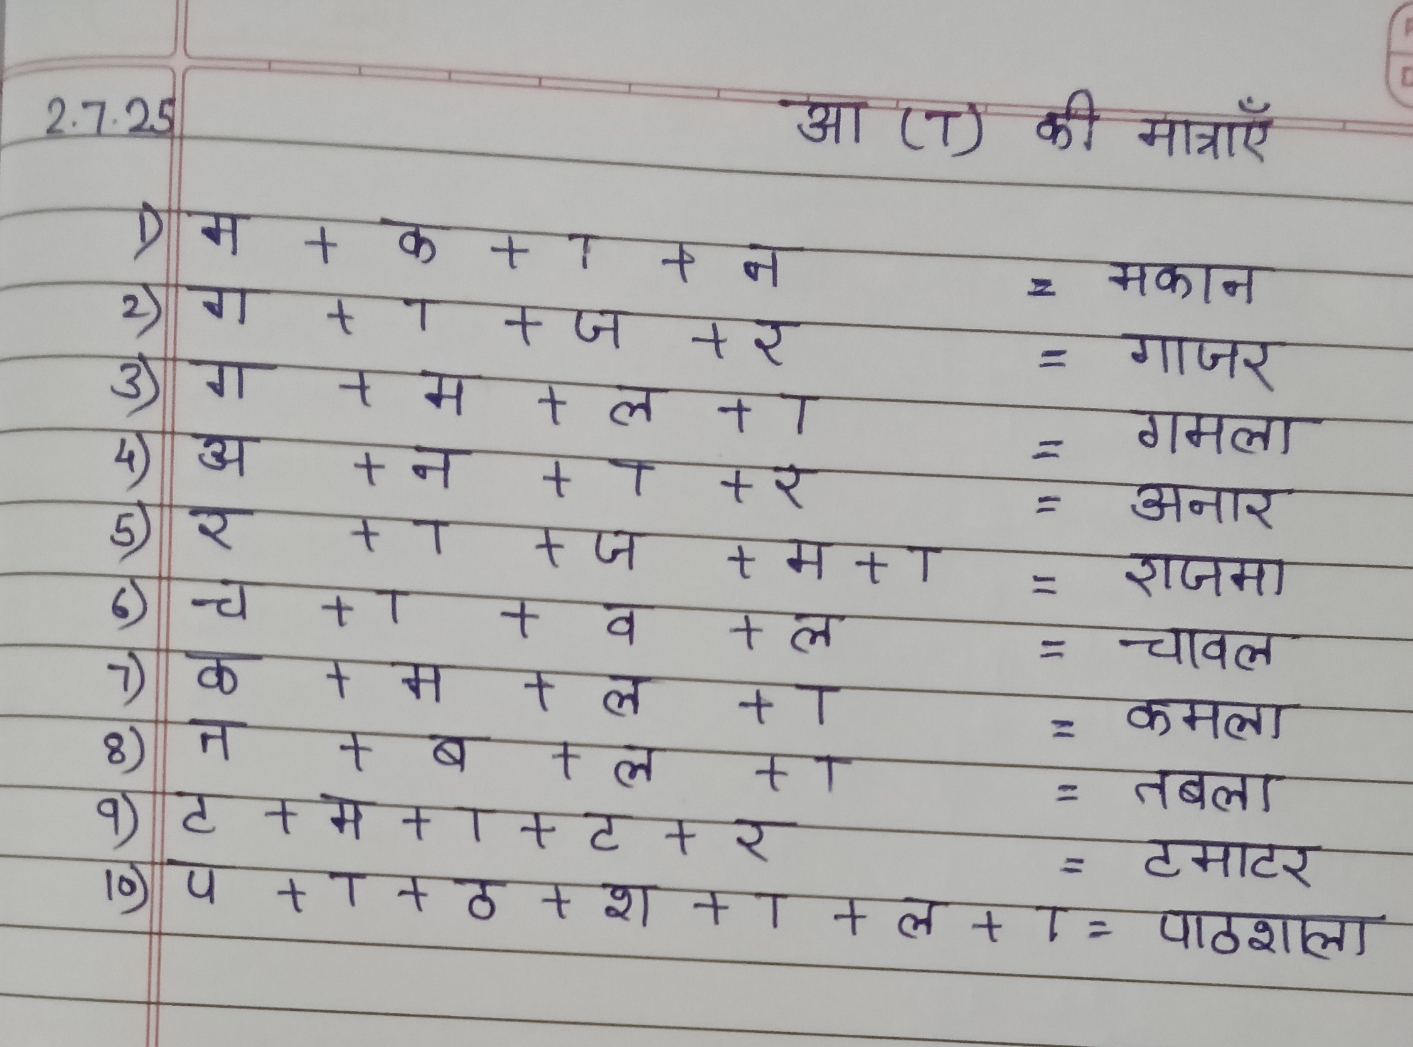 2.7.25 आ (ा) की मात्राएँ
1) म + क + ा + न = मकान
2) ग + ा + ज + र = गाजर
3) ग + म + ल + ा = गमला
4) अ + न + ा + र = अनार
5) र + ा + ज + म + ा = राजमा
6) च + ा + व + ल = चावल
7) क + म + ल + ा = कमला
8) त + ब + ल + ा = तबला
9) ट + म + ा + ट + र = टमाटर
10) प + ा + ठ + श + ा + ल + ा = पाठशाला